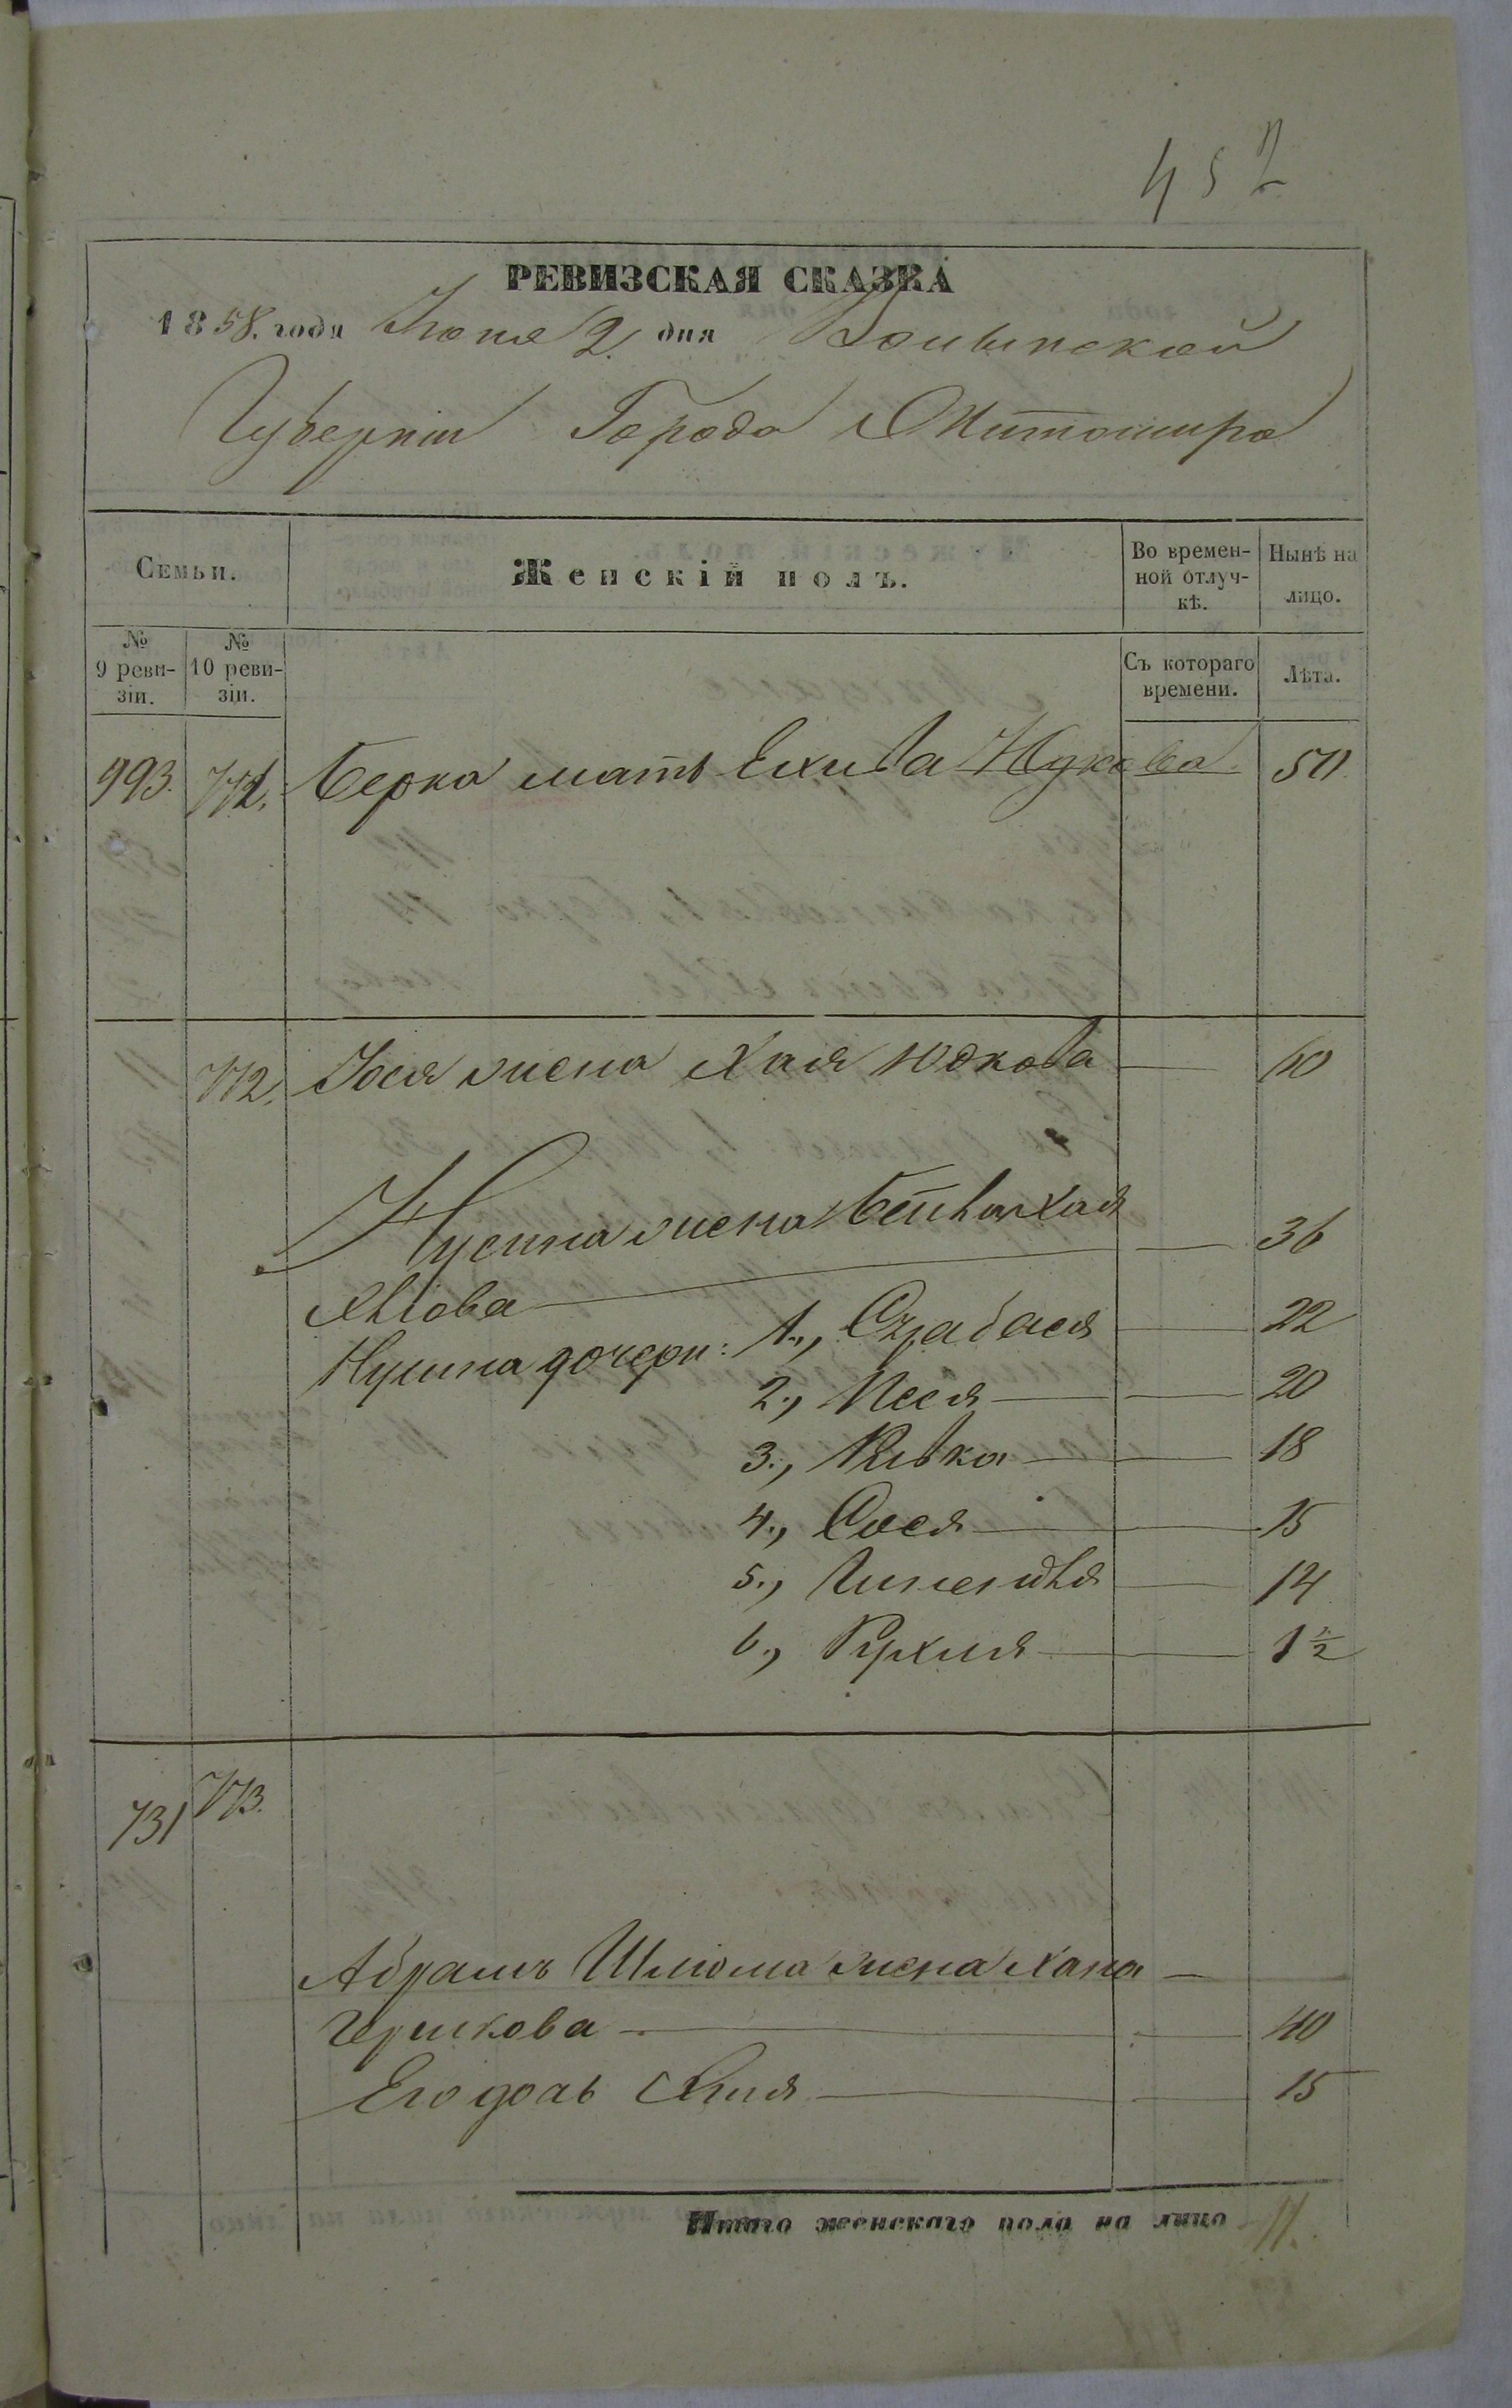 457
РЕВИЗСКАЯ СКАЗКА
1858. года Іюня 2. дня Волынской
Губерніи Города Житомира
Семьи. Женскій полъ. Во времен-ной отлуч-кѣ. Нынѣ на лицо.
№ 9 реви-зіи. № 10 реви-зіи. Съ котораго времени. Лѣта.
993. 771. Берка мать Ехивда Юдкова 50.
772. Іося жена Хая Юдкова 60
Нусина жена Бейла Хая 36
Нусина дочери: 1., 22
2., Песя 20
3., Ривка 18
4., Сося 15
5., 14
6., Рухля 1 1/2
731 773.
Абрамъ Шлiома жена Хана
Гершкова 40
Его дочь 15
Итого женскаго пола на лицо 11.